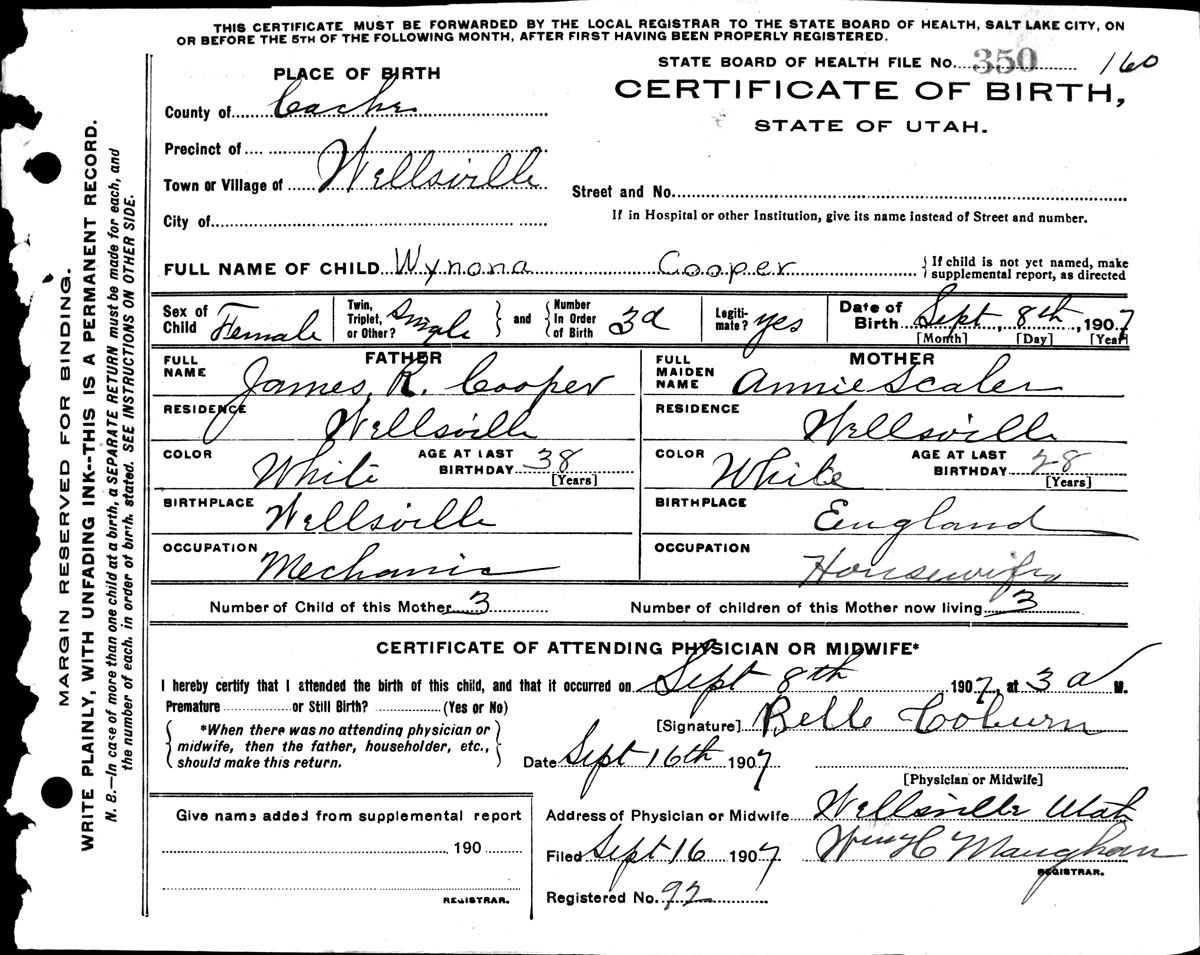 THIS CERTIFICATE MUST BE FORWARDED BY THE LOCAL REGISTRAR TO THE STATE BOARD OF HEALTH, SALT LAKE CITY, ON
OR BEFORE THE 5TH OF THE FOLLOWING MONTH, AFTER FIRST HAVING BEEN PROPERLY REGISTERED.
MARGIN RESERVED FOR BINDING.
WRITE PLAINLY, WITH UNFADING INK--THIS IS A PERMANENT RECORD.
N. B.—In case of more than one child at a birth, a SEPARATE RETURN must be made for each, and
the number of each, in order of birth, stated. SEE INSTRUCTIONS ON OTHER SIDE.
STATE BOARD OF HEALTH FILE No. 350 160
PLACE OF BIRTH
CERTIFICATE OF BIRTH,
STATE OF UTAH.
County of Cache
Precinct of
Town or Village of Wellsville
Street and No.
City of
If in Hospital or other Institution, give its name instead of Street and number.
FULL NAME OF CHILD Wynona Cooper { If child is not yet named, make
supplemental report, as directed
Sex of Child Female
Twin, Triplet, or Other? Single } and { Number In Order of Birth 3d
Legiti-mate? yes
Date of Birth Sept, 8th, 1907
[Month] [Day] [Year]
FATHER
FULL NAME James R. Cooper
RESIDENCE Wellsville
COLOR White AGE AT LAST BIRTHDAY 38
[Years]
BIRTHPLACE Wellsville
OCCUPATION Mechanic
MOTHER
FULL MAIDEN NAME Annie Scaler
RESIDENCE Wellsville
COLOR White AGE AT LAST BIRTHDAY 28
[Years]
BIRTHPLACE England
OCCUPATION Housewife
Number of Child of this Mother 3 Number of children of this Mother now living 3
CERTIFICATE OF ATTENDING PHYSICIAN OR MIDWIFE*
I hereby certify that I attended the birth of this child, and that it occurred on Sept 8th 1907, at 3 a M.
Premature or Still Birth? (Yes or No)
{ *When there was no attending physician or
midwife, then the father, householder, etc.,
should make this return. }
[Signature] Belle Coburn
Date Sept 16th 1907
[Physician or Midwife]
Give name added from supplemental report
190
REGISTRAR.
Address of Physician or Midwife Wellsville Utah
Filed Sept 16 1907. Wm H Maughan
REGISTRAR.
Registered No. 92